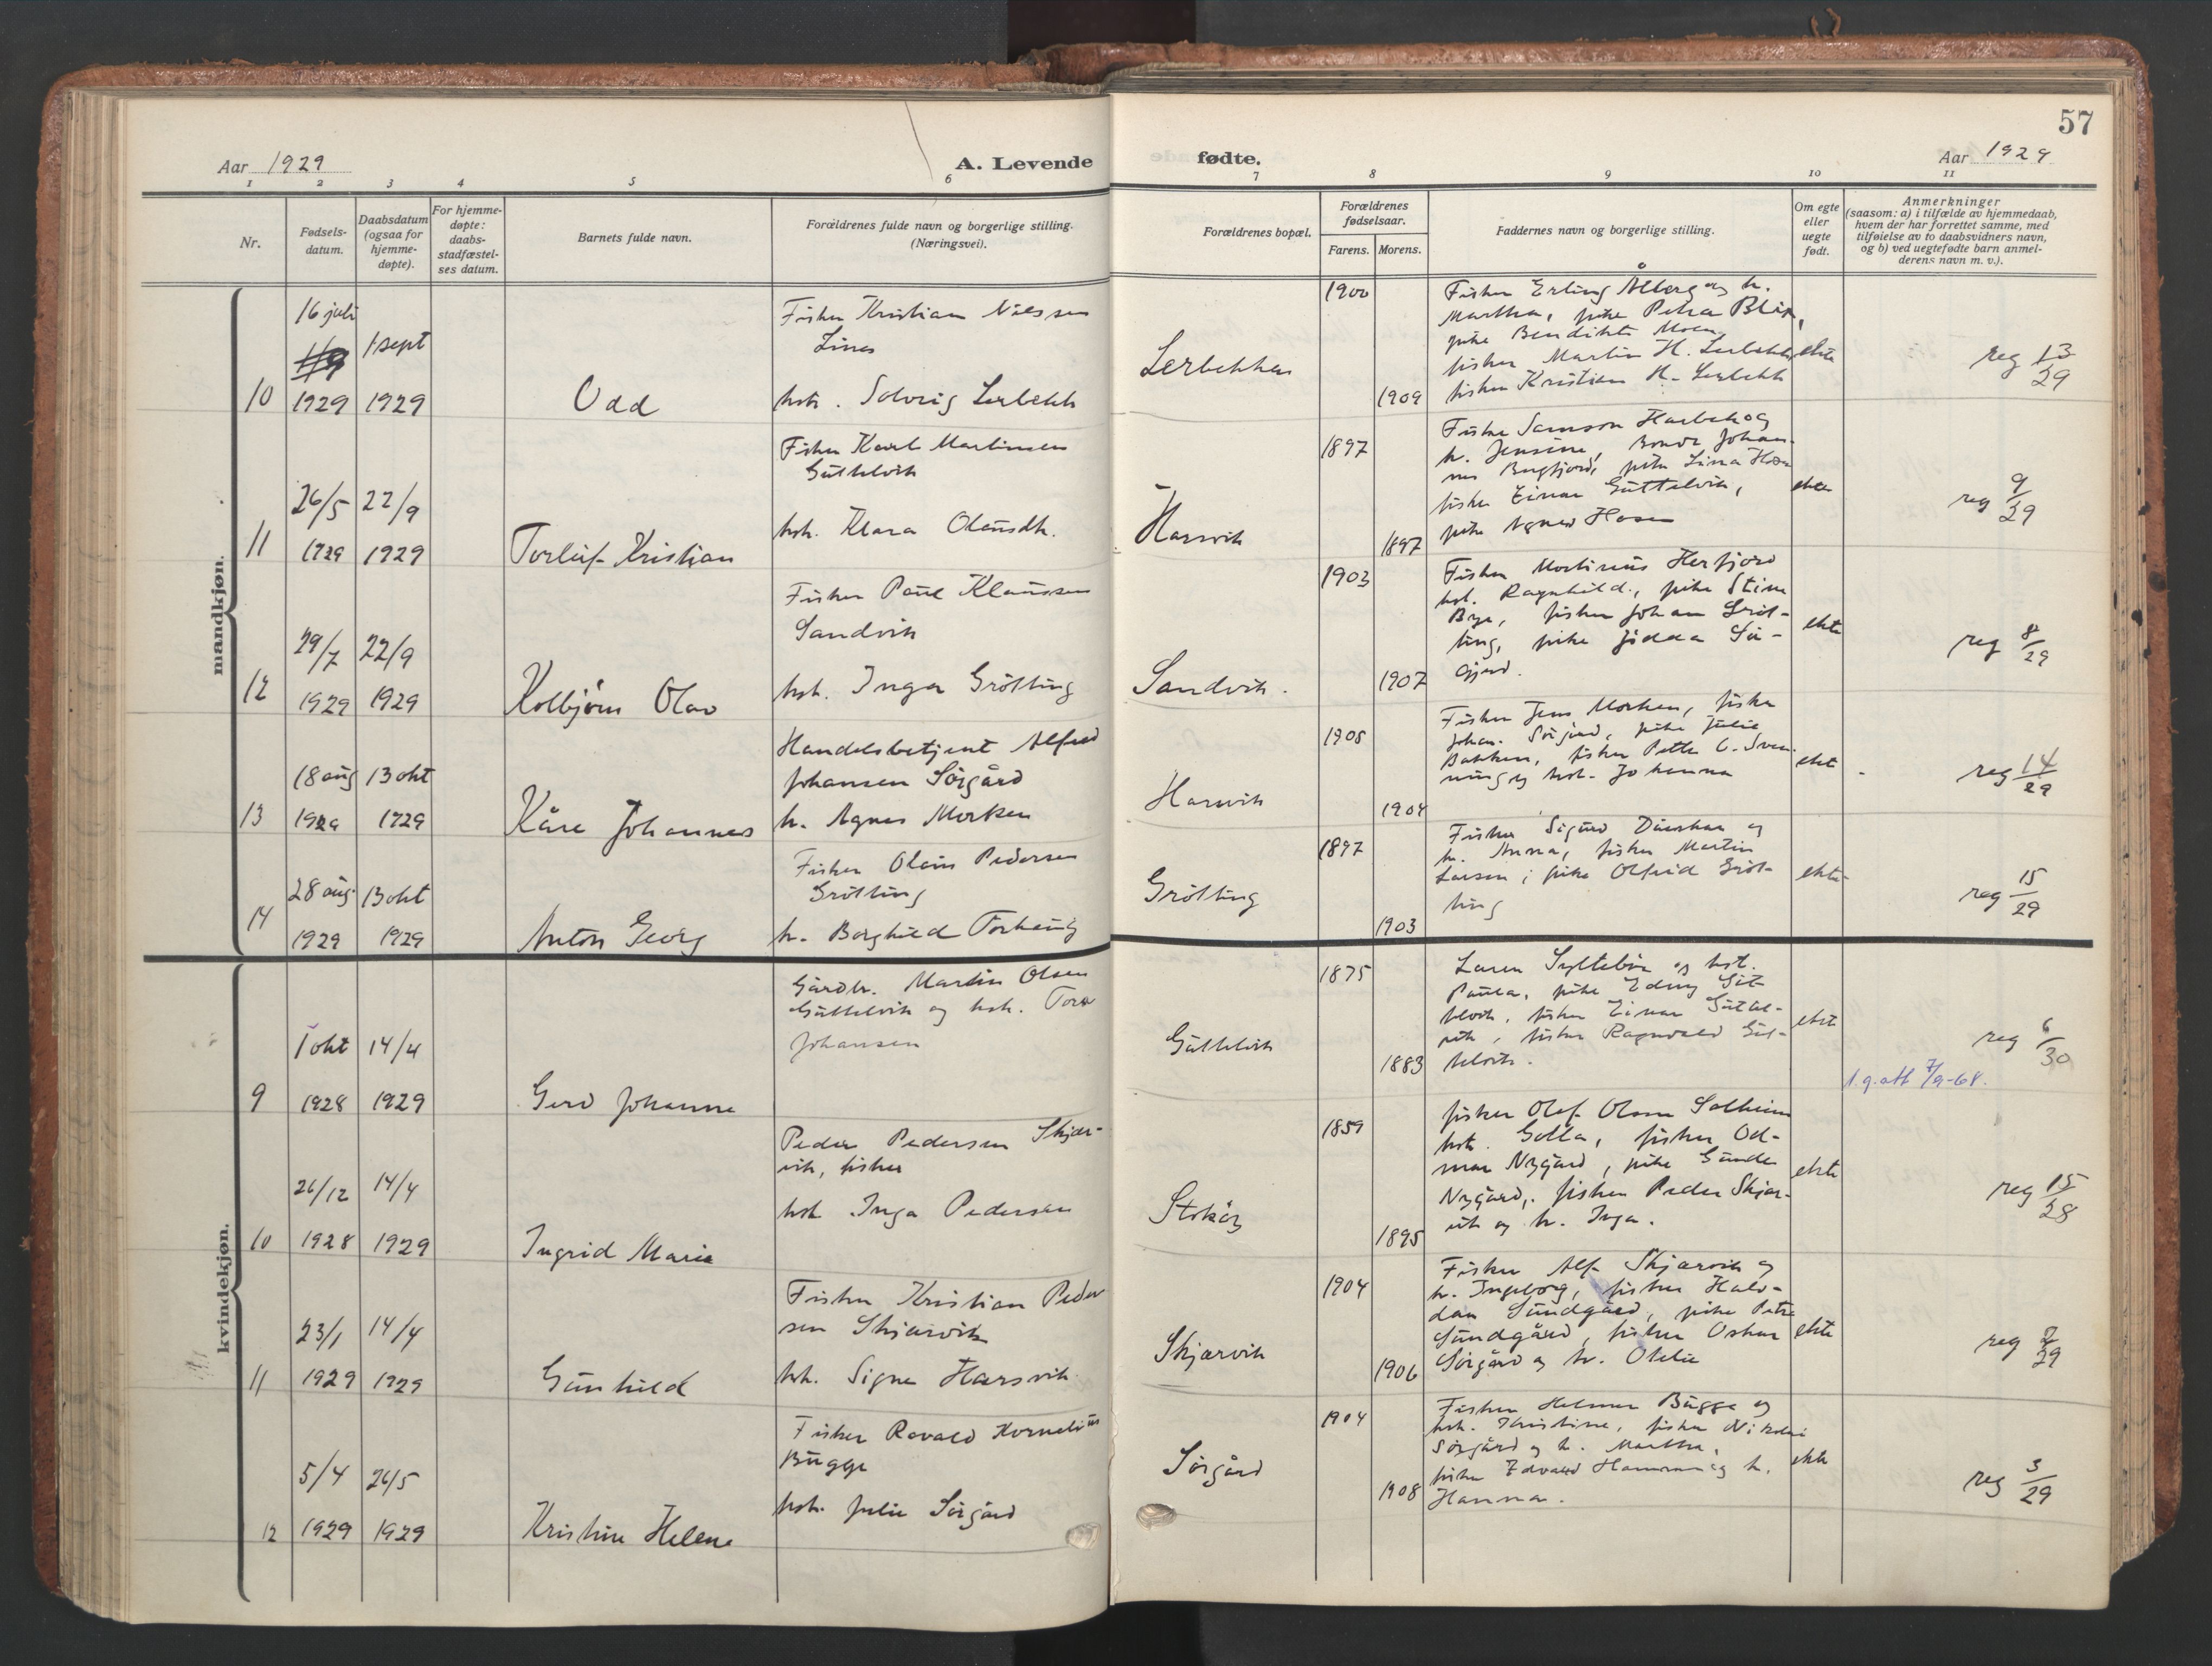 57
Aar 1929
A. Levende
fødte.
Aar 1929
1 2 3 4 5 6 7 8 9 10 11
Nr.
Fødsels-
datum.
Daabsdatum
(ogsaa for
hjemme-
døpte).
For hjemme-
døpte:
daabs-
stadfæstel-
ses datum.
Barnets fulde navn.
Forældrenes fulde navn og borgerlige stilling.
(Næringsvei).
Forældrenes bopæl.
Forældrenes
fødselsaar.
Farens. Morens.
Faddernes navn og borgerlige stilling.
Om egte
eller
uegte
født.
Anmerkninger
(saasom: a) i tilfælde av hjemmedaab,
hvem der har forrettet samme, med
tilføielse av to daabsvidners navn,
og b) ved uegtefødte barn anmel-
derens navn m. v.).
mandkjøn.
10
16 juli
1929
1 sept
1929
Odd
Fisker Kristian Nilssen
Lines
hstr. Solveig Lerbekk
Lerbekken
1900
1909
Fisker Erling Åberg og h.
Martha, pike Petra Blix,
pike Bendikte Moen,
fisker Martin H. Lerbekk
fisker Kristian H. Lerbekk
ekte
reg 13/29
11
26/5
1929
22/9
1929
Torleif Kristian
Fisker Karl Martinsen
Guttelvik
hst. Klara Olausdtr.
Harsvik
1897
1897
Fisker Samson Harbak og
h. Jensine, Bonde Johan-
nes Bugfjord, pike Lina
fisker Einar Guttelvik,
pike Agnes Hosen
ekte
reg 9/29
12
29/7
1929
22/9
1929
Kolbjørn Olav
Fisker Paul Klaussen
Sandvik
hst. Inga Grötting
Sandvik.
1903
1907
Fisker Martinus Herfjord
hst. Ragnhild, pike Stina
Bye, fisker Johan Gröt-
ting, pike Jödda Sö-
gjerd.
ekte
reg 8/29
13
18 aug
1929
13 okt
1929
Kåre Johannes
Handelsbetjent Alfred
Johansen Sörgård
h. Agnes Morken
Harsvik
1905
1904
Fisker Jens Morken, fisker
Johan Sörgård, pike Julie
Bakken, fisker Petter C. Sven-
ning og hst. Johanna
ekte
reg 14/29
14
28 aug
1929
13 okt
1929
Anton Georg
Fisker Olaus Pedersen
Grötting
h. Borghild
Grötting
1897
1903
Fisker Sigurd og
h. Anna, fisker Martin
Larsen, pike Olfrid Gröt-
ting
ekte
reg 15/29
kvindekjøn.
9
1 okt
1928
14/4
1929
Gerd Johanne
Gårdbr. Martin Olsen
Guttelvik og hst. Tora
Johansen
Guttelvik
1875
1883
og hst.
Paula, pike Edny Gut-
telvik, fisker Einar Guttel-
vik, fisker Ragnvald Gut-
telvik.
ekte
reg 6/30
1. g. att 7/9-68.
10
26/12
1928
14/4
1929
Ingrid Marie
Peder Pedersen Skjær-
vik, fisker
hst Inga Pedersen
Stokøy
1859
1895
fisker Olaf Olsen Solheim
hst. Golla, fisker Od-
mar Nygård, pike Gunda
Nygård, fisker Peder Skjær-
vik og h. Inga.
ekte
reg 15/28
11
23/1
1929
14/4
1929
Gunhild
Fisker Kristian Peder
sen Skjærvik
hst. Signe Harsvik
Skjærvik
1904
1906
Fisker Alf Skjærvik og
h. Ingeborg, fisker Halv-
dan Sundgård, pike Petra
Sundgård, fisker Oskar
Sörgård og h. Otelie
ekte
reg 2/29
12
5/4
1929
26/5
1929
Kristine Helene
Fisker Ravald Kornelius
Bugge
hst. Julie Sörgård
Sörgård
1904
1908
Fisker Helmer Bugge og
hst. Kristine, fisker Nikolai
Sörgård og h. Martha,
fisker Edvard og h.
Hanna.
ekte
reg 3/29